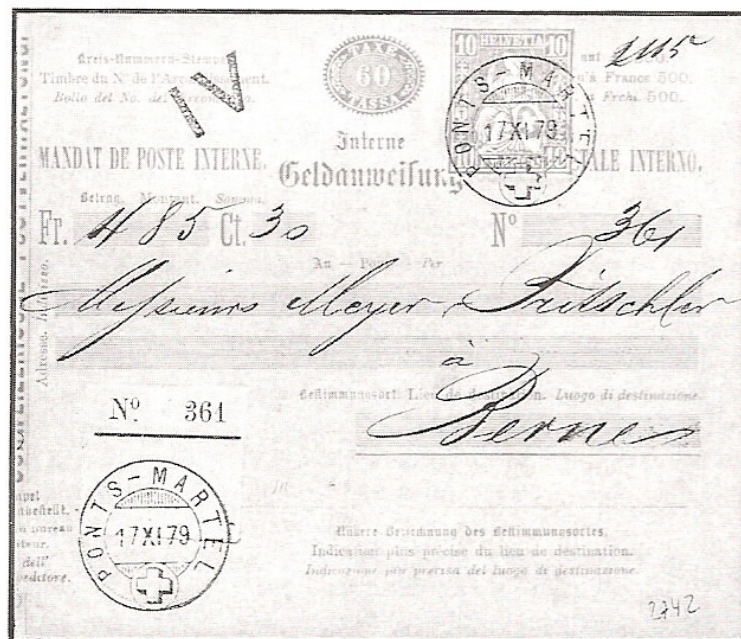 Kreis-Nummern-Stempel
Timbre du No de l'Arrondissement.
Bollo del No. del Circondario.
IV
TAXE
60
TASSA
10 HELVETIA 10
10 10
2115
Francs 500.
Frchi 500.
PONTS-MARTEL
17 XI 79
MANDAT DE POSTE INTERNE.
Interne
Geldanweisung
TALE INTERNO.
Betrag. Montant. Somma.
Fr. 485 Ct. 30
No 361
An — Pour — Per
Adresse. Indirizzo.
Messieurs Meyer Fritschler
à
Bestimmungsort. Lieu de destination. Luogo di destinazione.
Berne
No 361
PONTS-MARTEL
17 XI 79
Nähere Bezeichnung des Bestimmungsortes.
Indication plus précise du lieu de destination.
Indicazione più precisa del luogo di destinazione.
2742